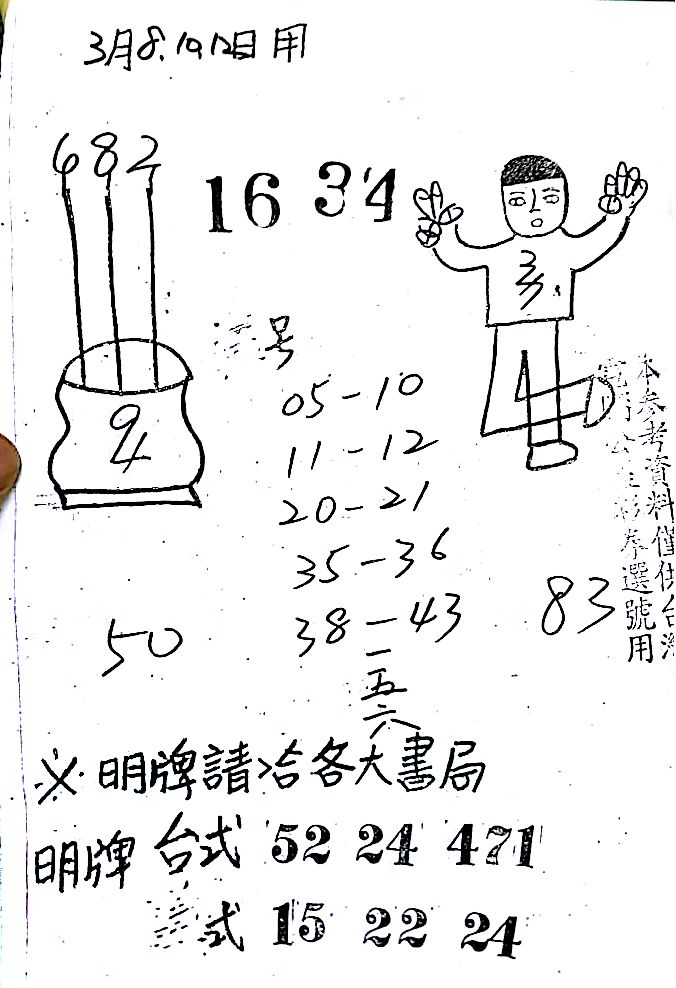 3月8.10.12日用
682
16 34
94
号
05-10
11-12
20-21
35-36
38-43
一
五
六
50
83
本參考資料僅供台灣
選號用
※明牌請洽各大書局
明牌 台式 52 24 471
式 15 22 24